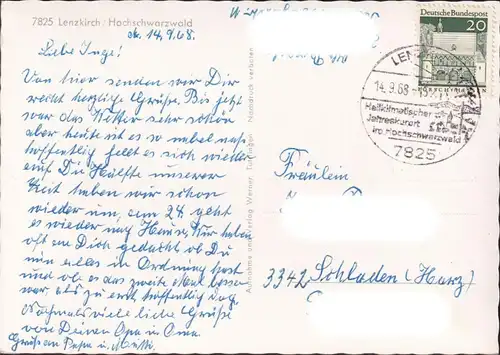 7825 Lenzkirch / Hochschwarzwald
d. 14.9.68.
Liebe Inge!
Von hier senden wir Dir
recht herzliche Grüße. Bis jetzt
war das Wetter sehr schön
aber heute ist es so nebel naß
hoffentlich hellt es sich wieder
auf. Die Hälfte unserer
Zeit haben wir schon
wieder um, am 24. geht
es wieder nach Hause. Wir haben
oft an Dich gedacht ob Du
nun alles in Ordnung hast
und ob es das zweite Mal besser
war, als zu erst, hoffentlich
Nochmals viele liebe Grüße
von Deinen Opa u. Oma.
Grüße an Papa u. Mutti.
Aufnahme und Verlag Werner
Nachdruck verboten
Deutsche Bundespost
20
LEN
14.9.68
Heilklimatischer
Jahreskurort
im Hochschwarzwald
7825
Fräulein
3342 Schladen (Harz)